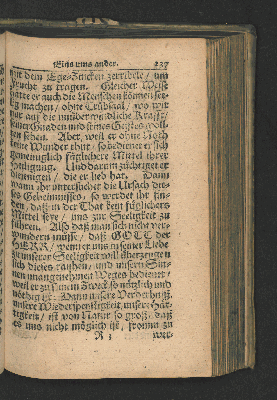 Eins ums ander. 237
mit dem Ege-Zincken zerribele / um
Frucht zu tragen. Gleicher Weise
hätte er auch die Menschen können see-
lig machen / ohne Trübsaal / wo wir
nur auf die unüberwindliche Krafft /
seiner Gnaden und seines Geistes woll-
ten sehen. Aber, weil er ohne Noth
keine Wunder thut / so bedienet er sich
gemeiniglich füglichere Mittel ihrer
Heiligung. Und darum züchtiget er
diejenigen / die er lieb hat. Dann
wann ihr untersuchet die Ursach die-
ses Geheimnisses, so werdet ihr fin-
den, daß in der That kein füglichers
Mittel seye / uns zur Seeligkeit zu
führen. Also daß man sich nicht ver-
wundern müsse / daß GOTT der
HERR / wenn er uns in seiner Liebe
zu unserer Seeligkeit will überzeugen
sich dieses rauhen / und unsern Sin-
nen unangenehmen Weges bedienet /
weil er zu seinem Zweck so nützlich und
nöthig ist: Dann unsere Verderbniß,
unsere Wiederspenstigkeit, unsere Här-
tigkeit / ist von Natur so groß, daß
es uns nicht möglich ist, fromm zu
R 3 wer-